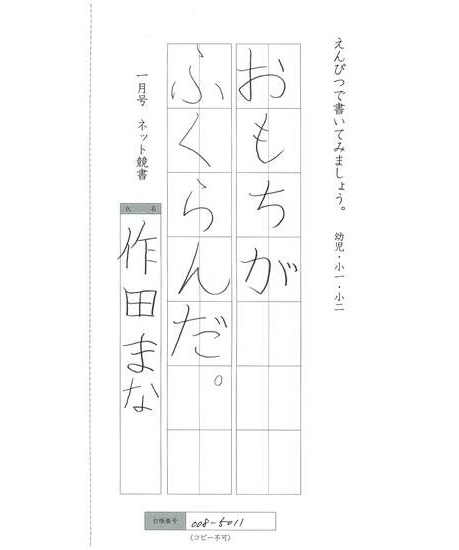 えんぴつで書いてみましょう。 幼児・小一・小二
おもちが
ふくらんだ。
一月号 ネット競書
氏名
作田まな
台帳番号 008-5011
(コピー不可)